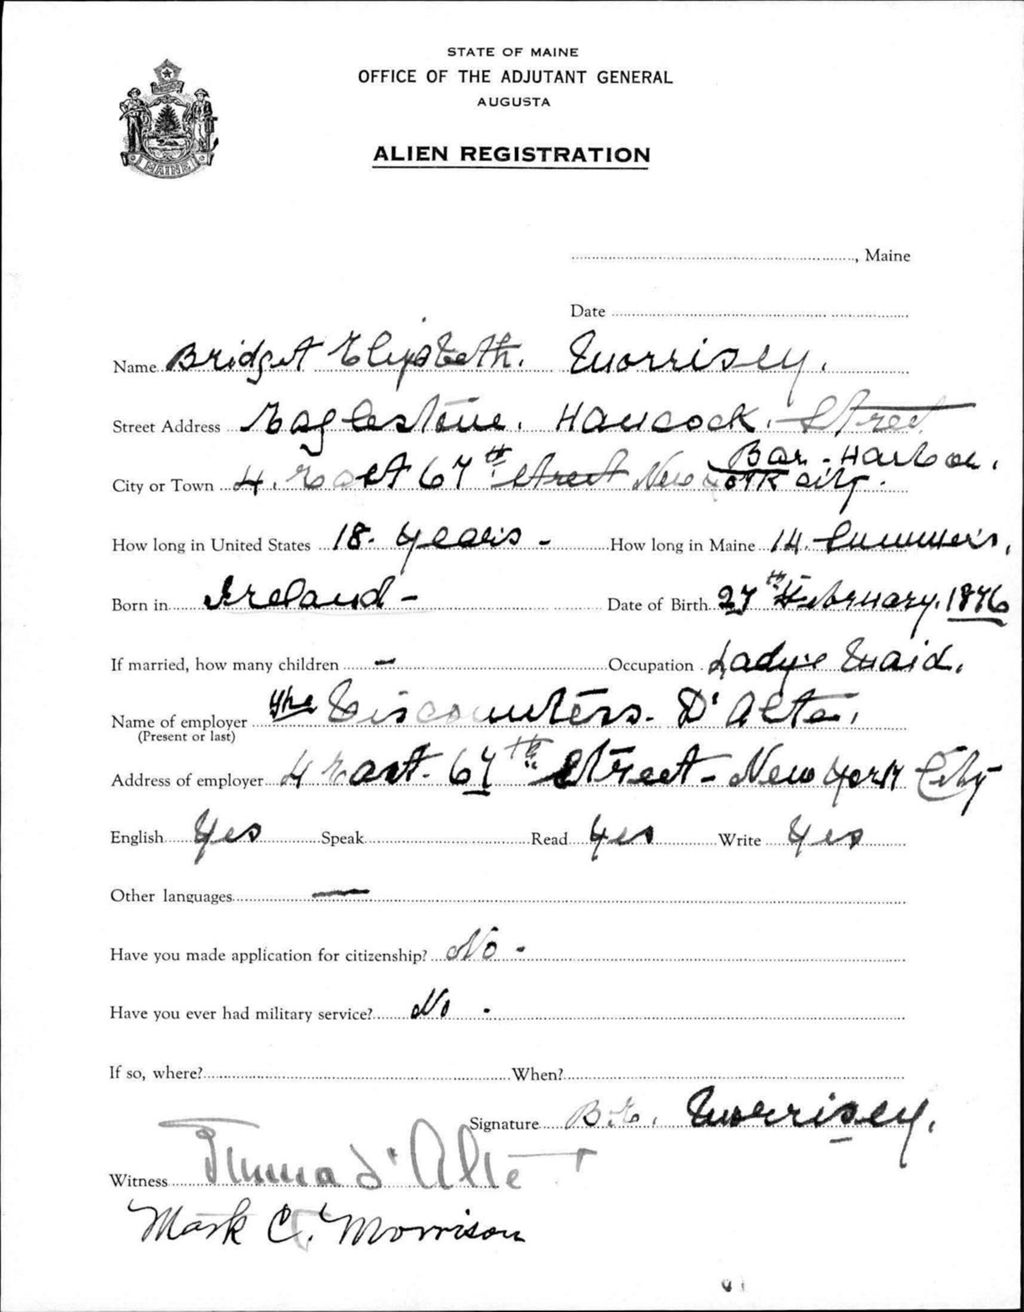 STATE OF MAINE
OFFICE OF THE ADJUTANT GENERAL
AUGUSTA
MAINE
ALIEN REGISTRATION
, Maine
Date
Name Bridget Elizabeth. Morrisey.
Street Address Eaglestone. Hancock. Street
Bar-Harbor.
City or Town 4. East 67th Street New York City.
How long in United States 18. years - How long in Maine 14. Summers.
Born in Ireland - Date of Birth 27th February. 1876
If married, how many children - Occupation Lady's Maid.
Name of employer the D'Alte.
(Present or last)
Address of employer 4 East. 67th Street - New York City
English Yes Speak Read Yes Write Yes
Other languages —
Have you made application for citizenship? No -
Have you ever had military service? No -
If so, where? When?
Signature B.E. Morrisey.
Witness d'Alte
Mark C. Morrison